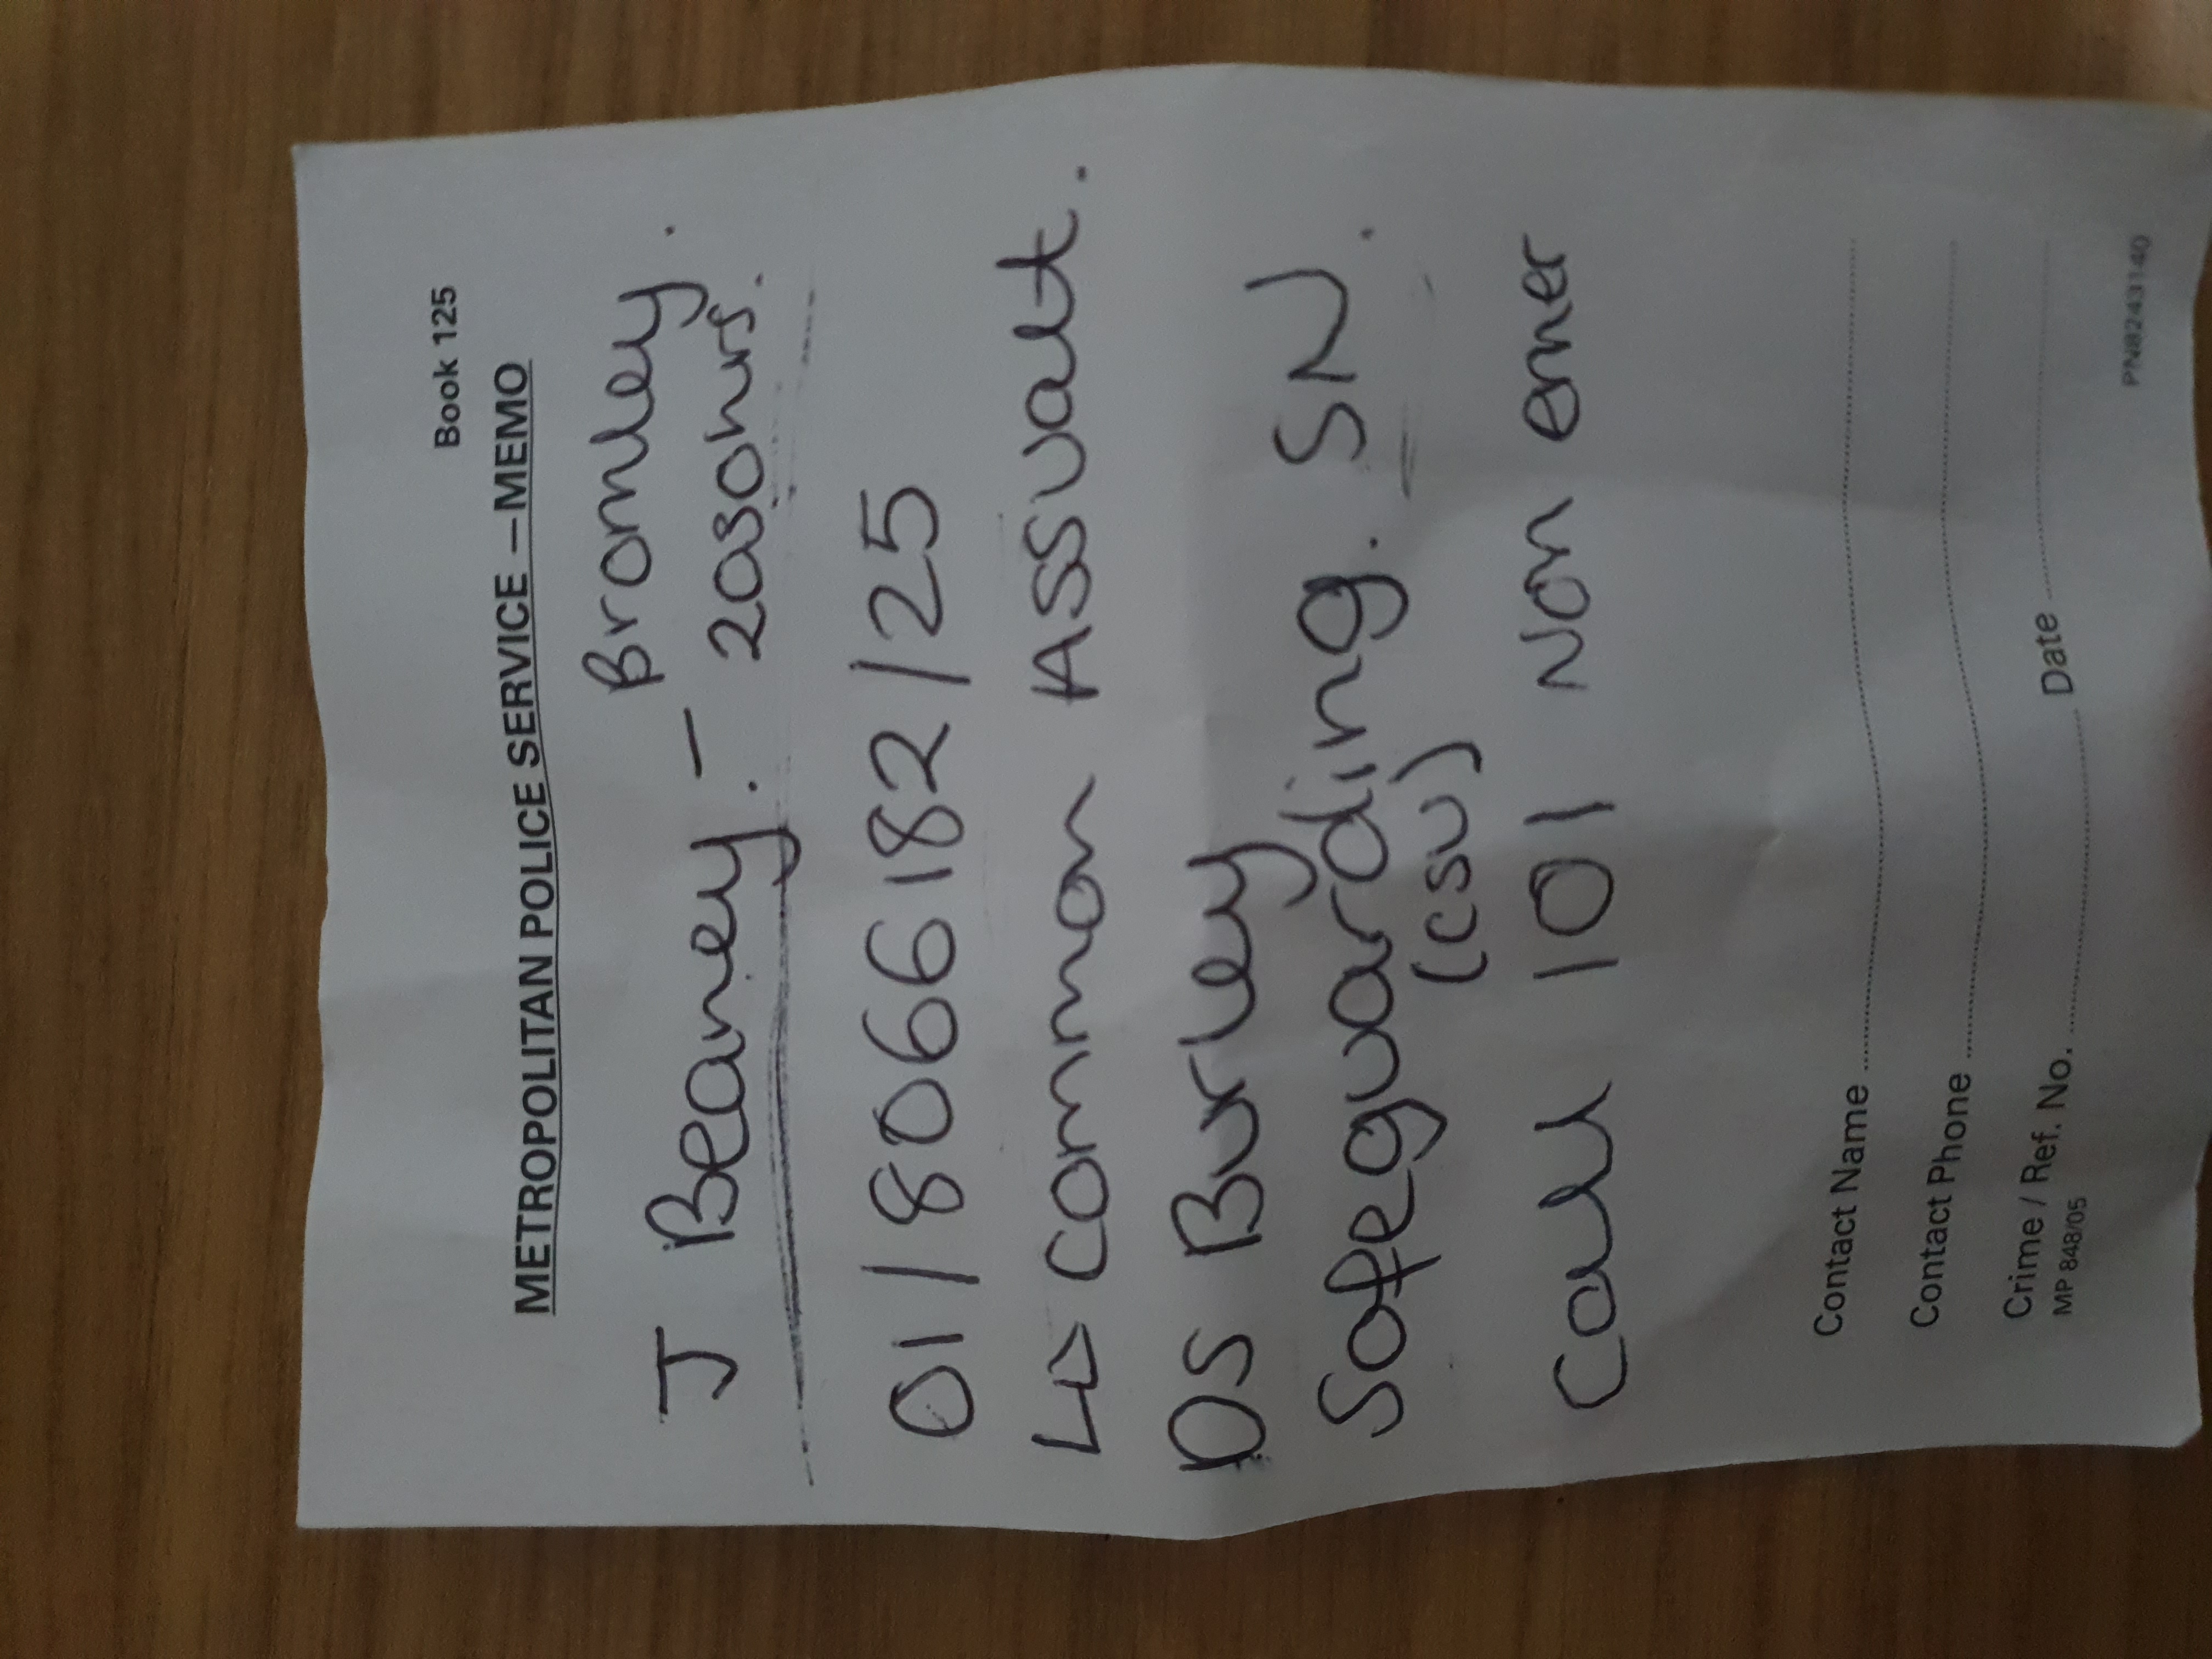 Book 125
METROPOLITAN POLICE SERVICE – MEMO
J Beaney. – Bromley.
2030hrs.
01/8066182/25
↳ Common Assualt.
DS Burley
Safeguarding. SN.
(CSU)
Call 101 Non emer
Contact Name
Contact Phone
Crime / Ref. No. Date
MP 848/05
PN8243140